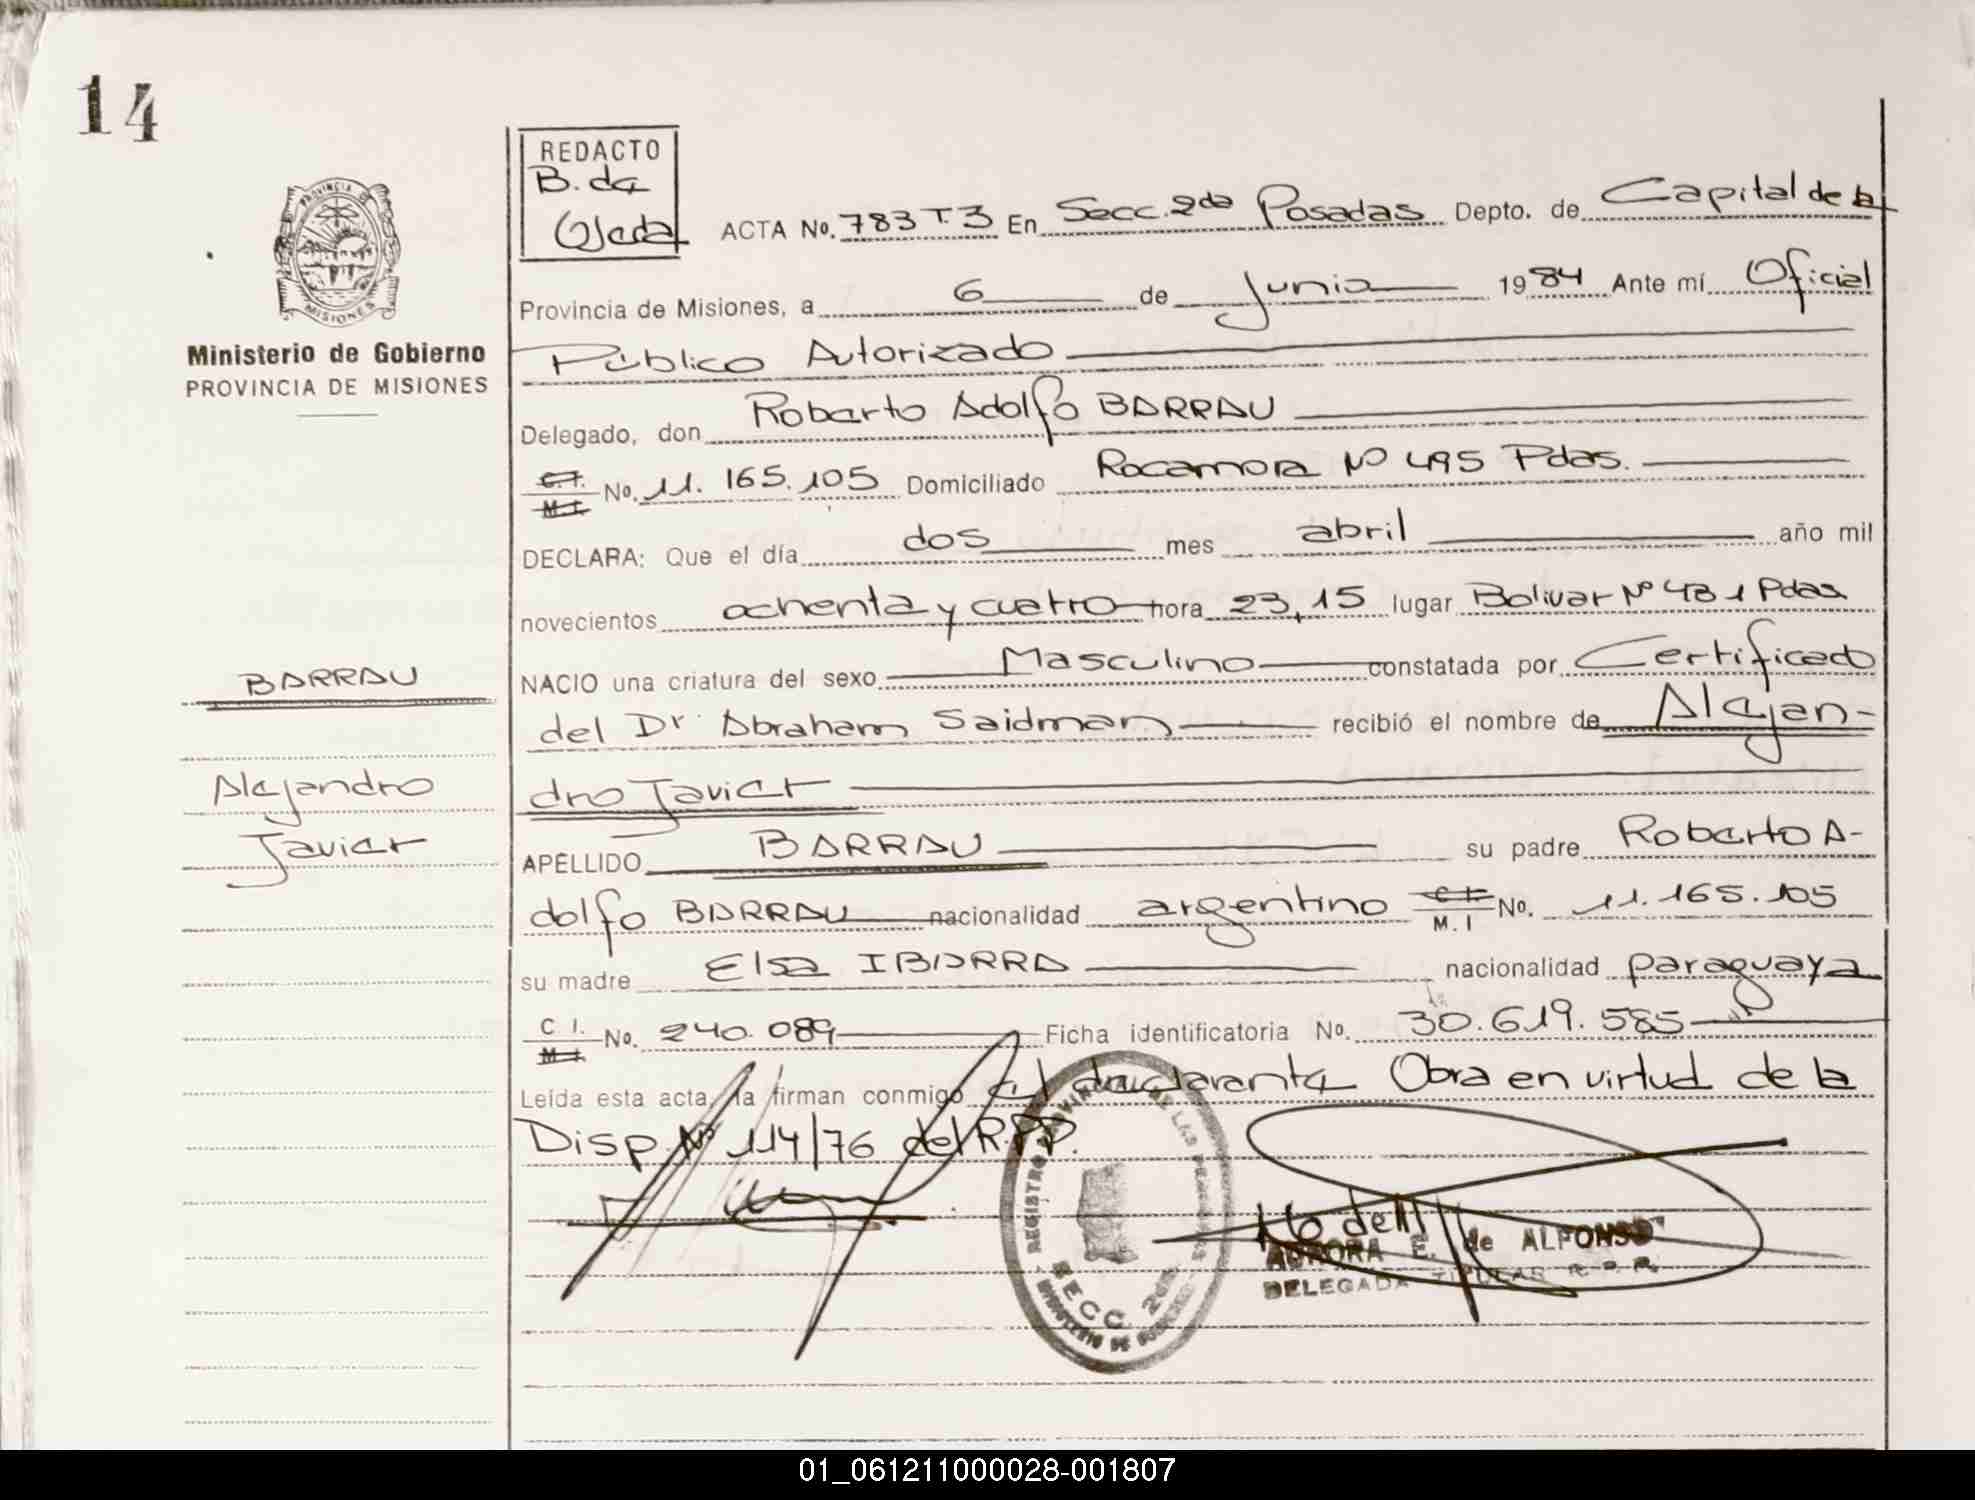 14
PROVINCIA DE
MISIONES
Ministerio de Gobierno
PROVINCIA DE MISIONES
BARRAU
Alejandro
Javier
REDACTO
B. de
Ojeda
ACTA No. 783 T.3 En Secc. 2da Posadas Depto. de Capital de la
Provincia de Misiones, a 6 de Junio 1984 Ante mí Oficial
Público Autorizado
Delegado, don Roberto Adolfo BARRAU
C.I. M.I. No. 11.165.105 Domiciliado Rocamora Nº 495 Pdas.
DECLARA: Que el día dos mes abril año mil
novecientos ochenta y cuatro hora 23,15 lugar Bolivar Nº 431 Pdas
NACIO una criatura del sexo Masculino constatada por Certificado
del Dr Abraham Saidman recibió el nombre de Alejan-
dro Javier
APELLIDO BARRAU su padre Roberto A-
dolfo BARRAU nacionalidad argentino C I. M. I No. 11.165.105
su madre Elsa IBARRA nacionalidad paraguaya
C I. M.I. No. 240.089 Ficha identificatoria No. 30.619.585
Leída esta acta, la firman conmigo el declarante Obra en virtud de la
Disp. Nº 114/76 del R.P.P.
REGISTRO PROVINCIAL DE LAS PERSONAS
SECC. 2da
MINISTERIO DE GOBIERNO
AURORA E. de ALFONSO
DELEGADA TITULAR R. P. P.
01_061211000028-001807